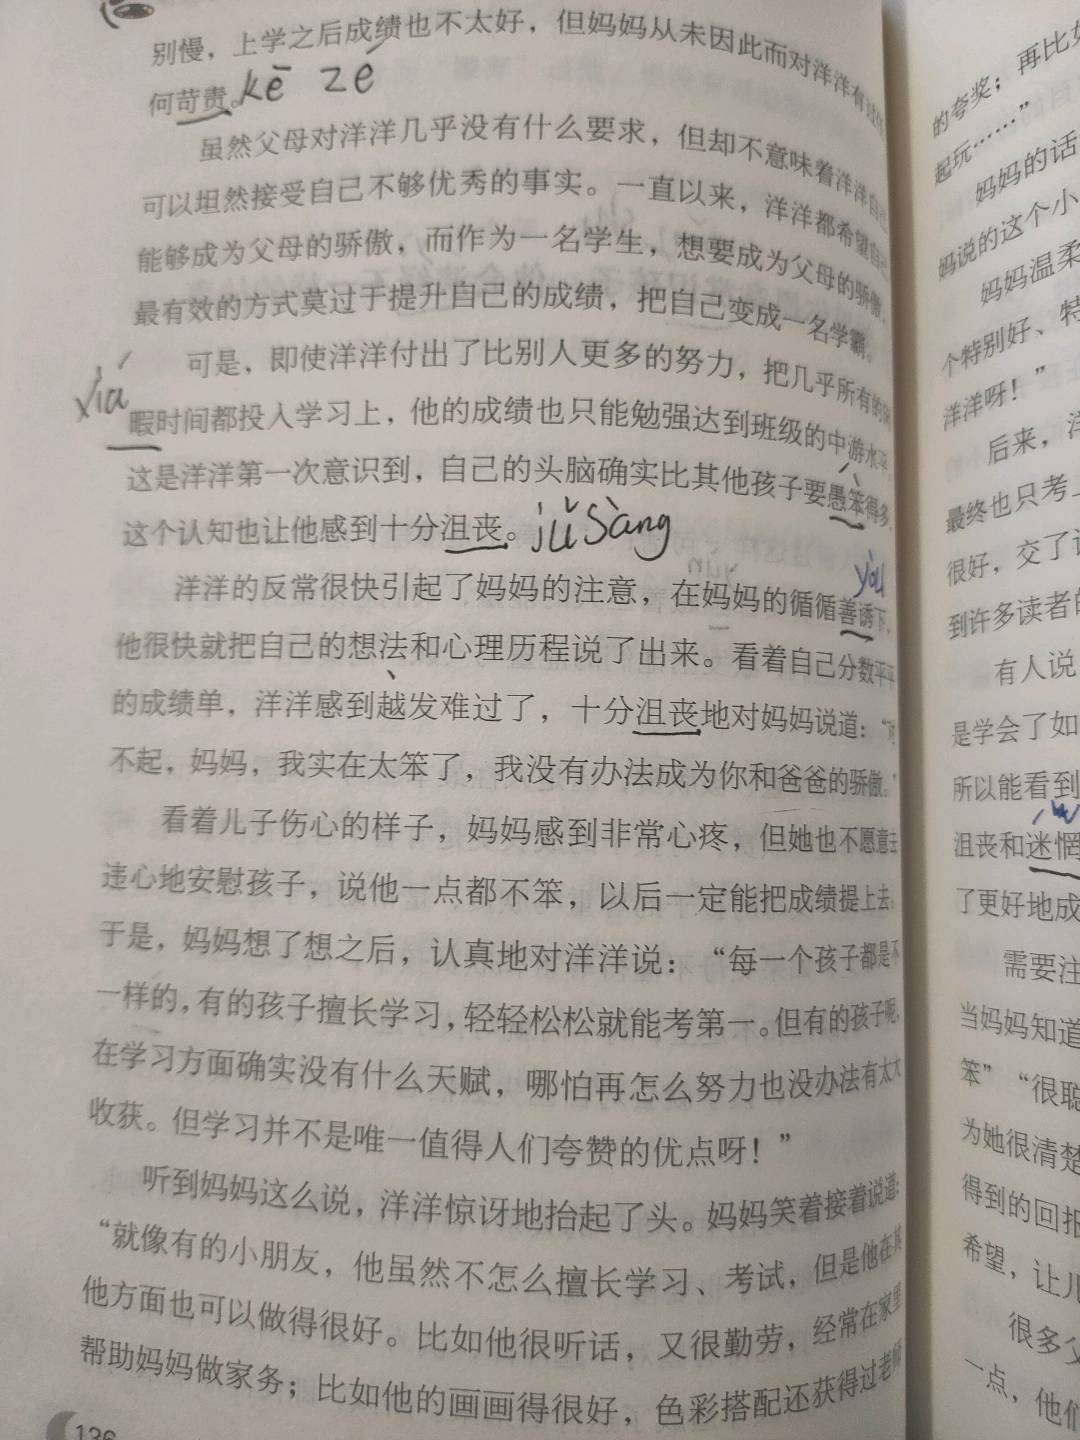 别慢，上学之后成绩也不太好，但妈妈从未因此而对洋洋有过任
何苛责。kē zé
虽然父母对洋洋几乎没有什么要求，但却不意味着洋洋自己
可以坦然接受自己不够优秀的事实。一直以来，洋洋都希望自己
能够成为父母的骄傲，而作为一名学生，想要成为父母的骄傲，
最有效的方式莫过于提升自己的成绩，把自己变成一名学霸。
可是，即使洋洋付出了比别人更多的努力，把几乎所有的闲
xiá
暇时间都投入学习上，他的成绩也只能勉强达到班级的中游水平，
这是洋洋第一次意识到，自己的头脑确实比其他孩子要愚笨得多，
这个认知也让他感到十分沮丧。jǔ sàng
yòu
洋洋的反常很快引起了妈妈的注意，在妈妈的循循善诱下，
他很快就把自己的想法和心理历程说了出来。看着自己分数平平
的成绩单，洋洋感到越发难过了，十分沮丧地对妈妈说道：“对
不起，妈妈，我实在太笨了，我没有办法成为你和爸爸的骄傲。”
看着儿子伤心的样子，妈妈感到非常心疼，但她也不愿意去
违心地安慰孩子，说他一点都不笨，以后一定能把成绩提上去。
于是，妈妈想了想之后，认真地对洋洋说：“每一个孩子都是不
一样的，有的孩子擅长学习，轻轻松松就能考第一。但有的孩子呢，
在学习方面确实没有什么天赋，哪怕再怎么努力也没办法有太大
收获。但学习并不是唯一值得人们夸赞的优点呀！”
听到妈妈这么说，洋洋惊讶地抬起了头。妈妈笑着接着说道：
“就像有的小朋友，他虽然不怎么擅长学习、考试，但是他在其
他方面也可以做得很好。比如他很听话，又很勤劳，经常在家里
帮助妈妈做家务；比如他的画画得很好，色彩搭配还获得过老师
136
的夸奖；再比如
起玩……”
妈妈的话
妈说的这个小
妈妈温柔
个特别好、特
洋洋呀！”
后来，洋
最终也只考上
很好，交了许
到许多读者的
有人说
是学会了如
所以能看到
沮丧和迷惘
了更好地成
需要注
当妈妈知道
笨”“很聪
为她很清楚
得到的回报
希望，让儿
很多父
一点，他们